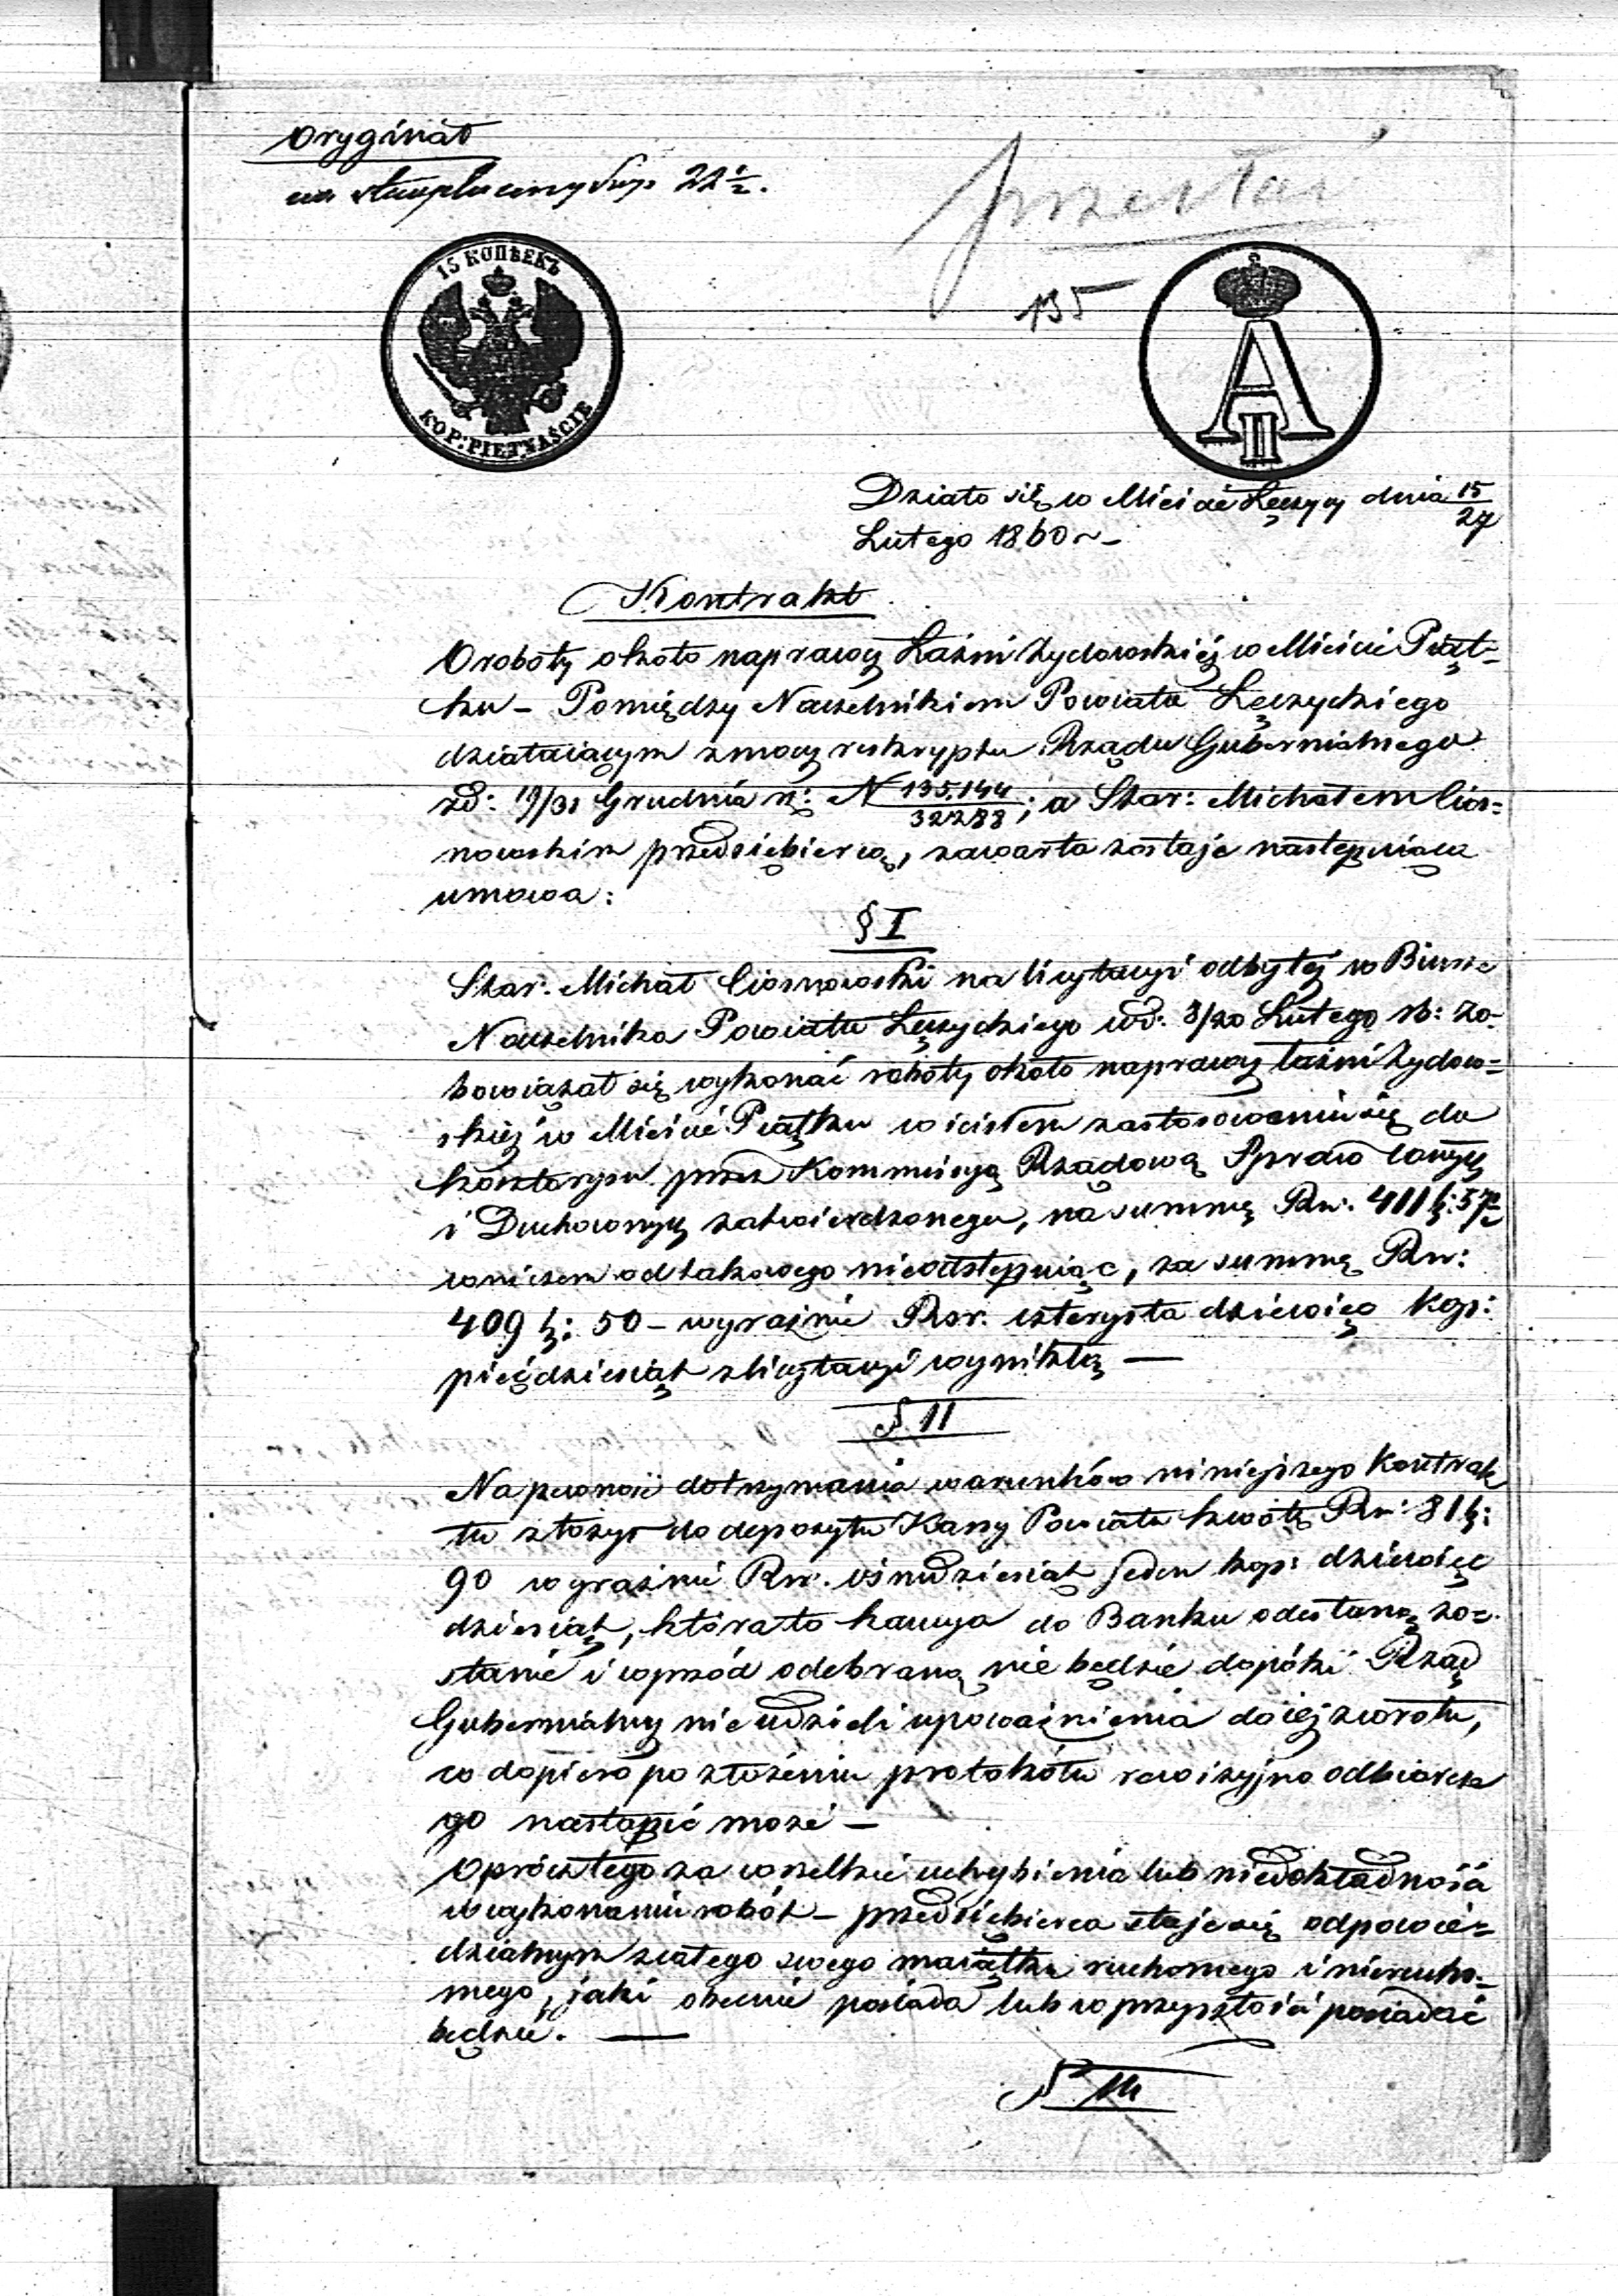 Oryginał
na stemplu ceny kop. 22 1/2.
przesłać
135
15 КОПѢЕКЪ
KOP: PIETNAŚCIE
A II
Działo się w Mieście Łęczycy dnia 15/27
Lutego 1860 ~ –
Kontrakt
O roboty około naprawy Łaźni żydowskiéj w Mieście Piąt=
ku – Pomiędzy Naczelnikiem Powiatu Łęczyckiego
działaiącym z mocy reskryptu Rządu Gubernialnego
z d: 19/31 Grudnia r: N 135.144/32288; a Star: Michałem Cios=
nowskim przedsiębiercą, zawarta zostaje następuiąca
umowa:
§ I
Star. Michał Ciosnowski na licytacyi odbytéj w Biurze
Naczelnika Powiatu Łęczyckiego w d: 8/20 Lutego rb: zo=
bowiązał się wykonać roboty około naprawy łaźni żydow=
skiéj w Mieście Piątku w ścisłem zastosowaniu się do
kosztorysu przez Kommissyą Rządową Spraw Wewnę
i Duchownych zatwierdzonego, na summę Rsr: 411 k: 57 1/2
w niczem od takowego nieodstępuiąc, za summę Rsr:
409 k: 50 – wyraźnie Rsr. czterysta dziewięć kop:
pięćdziesiąt z licytacyi wynikłą —
§. II
Na pewność dotrzymania warunków niniejszego Kontrak
tu złożył do depozytu Kassy Powiatu kwotę Rsr: 81 k:
90 wyraźnie Rsr. ośmdziesiąt jeden kop: dziewięć
dziesiąt, która to kaucya do Banku odesłaną zo=
stanie i wprzód odebraną nie będzie dopóki Rząd
Gubernialny nie udzieli upoważnienia do iéj zwrotu,
co dopiero po złożeniu protokółu rewizyjno odbiorcze
go nastąpić może —
Oprócz tego za wszelkie uchybienia lub niedokładność
w wykonaniu robót – przedsiębierca staje się odpowie=
dzialnym z całego swego maiątku ruchomego i nierucho=
mego, jaki obecnie posiada lub w przyszłości posiadać
będzie. —
§ III